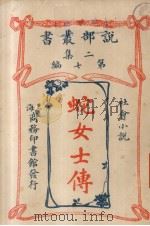 說部叢書
二集
第七編
社會小說
蛇女士傳
上海商務印書館發行